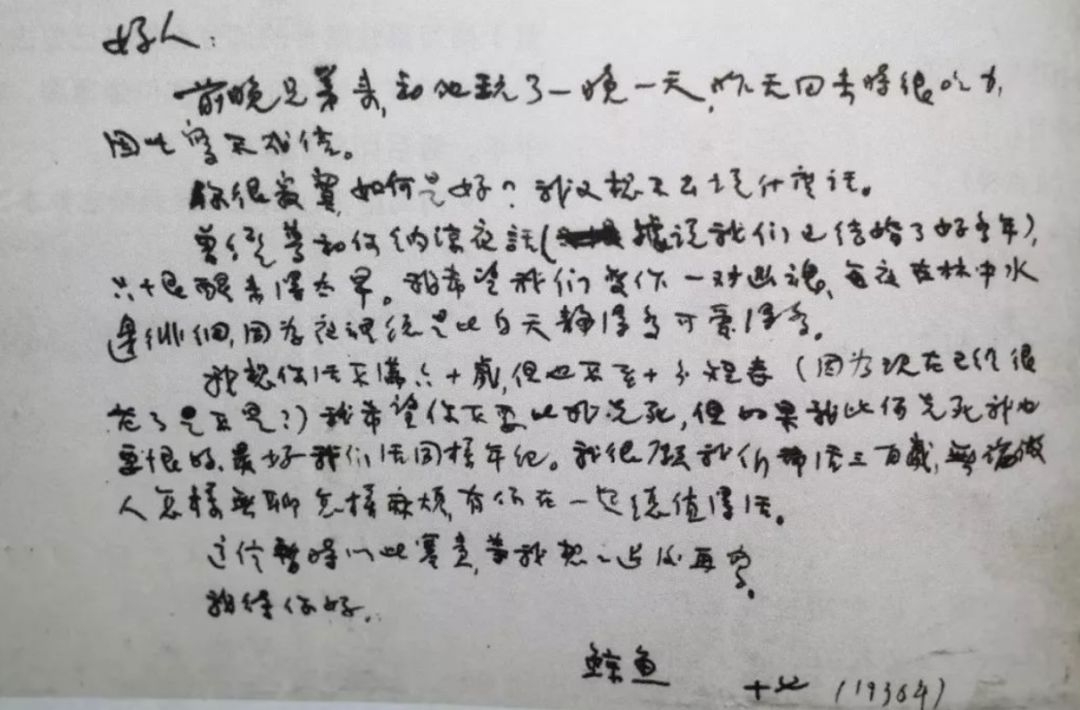 好人：
前晚兄弟来，和他玩了一晚一天，昨天回去时很吃力，
因此写不成信。
你很寂寞，如何是好？我又想不出说什么话。
曾经梦和你纳凉夜话（据说我们已结婚了好多年），
只十恨醒来得太早。我希望我们变作一对幽魂，每夜在林中水
边徘徊，因为夜里总是比白天静得多可爱得多。
我想你活不满六十岁，但也不至十分短寿（因为现在已经很
老了是不是？）我希望你不要比我先死，但如果我比你先死我也
要恨的，最好我们活同样年纪。我很愿我们都活三百岁，無论做
人怎样無聊怎样麻烦，有你在一起总值得活。
这信暂时以此塞责，等我想一想后再写。
我待你好。
鲸鱼
十四 (1936.4)